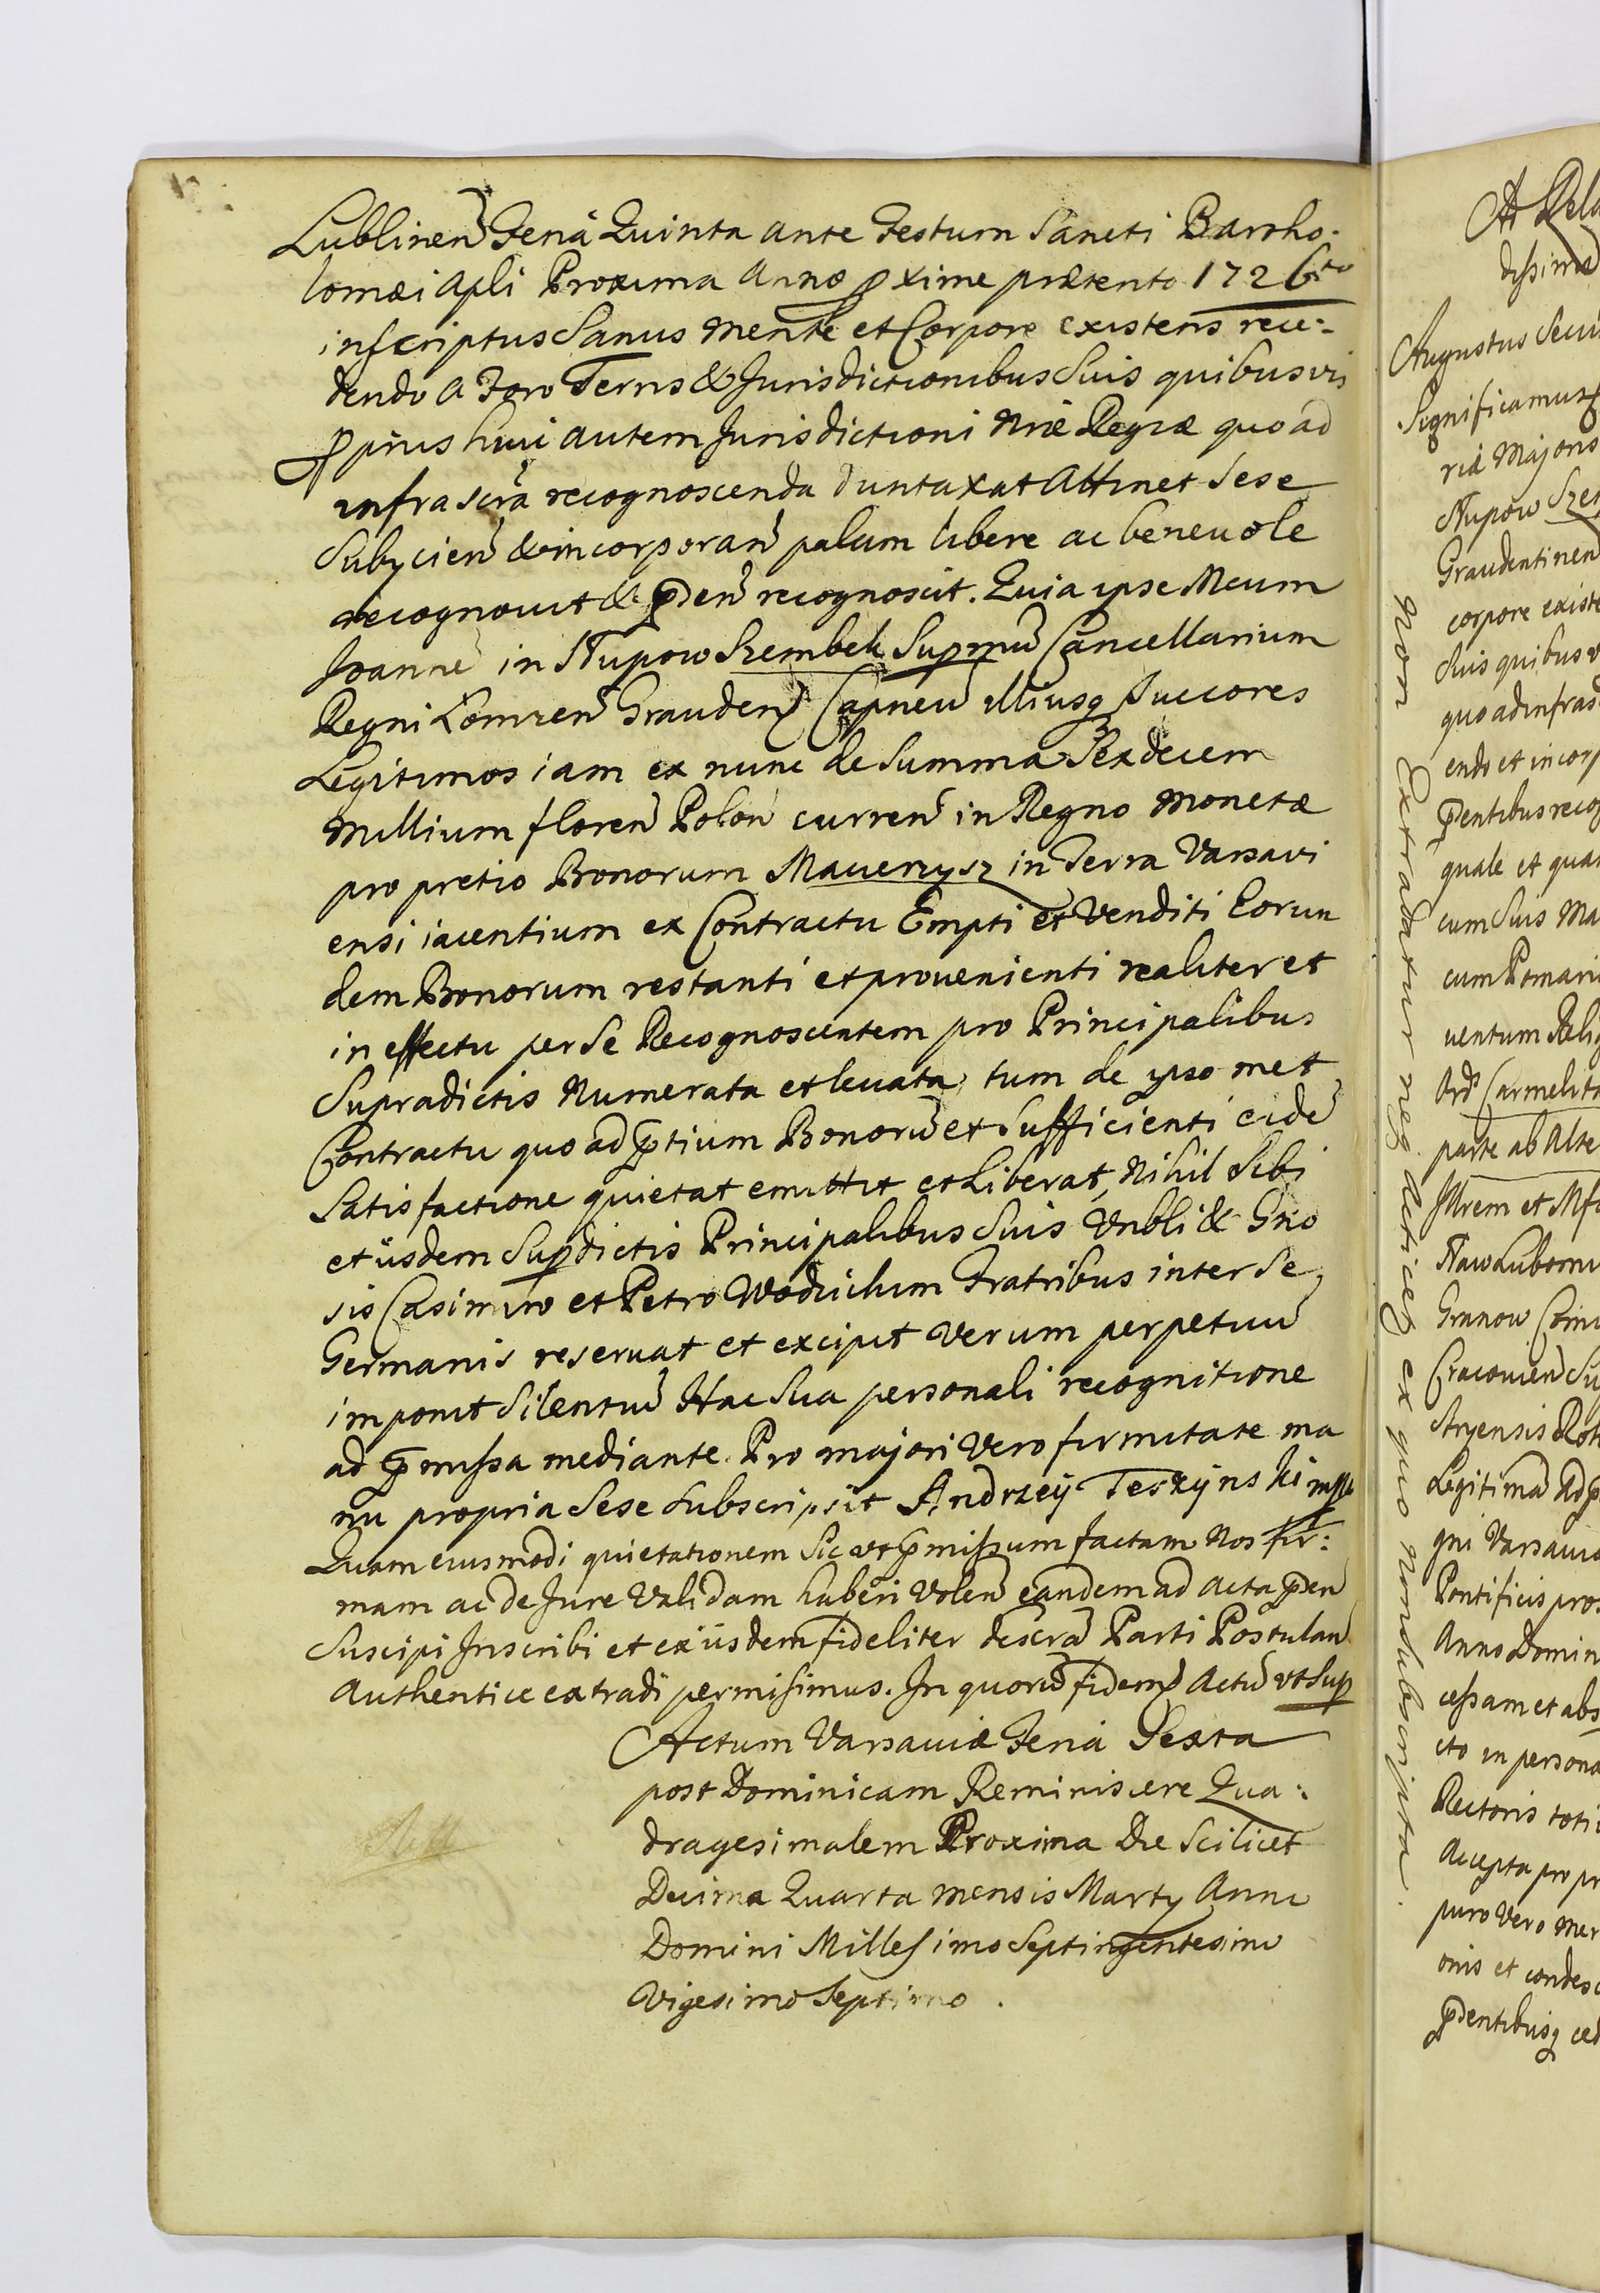 Lublinen Feriâ Quinta ante Festum Sancti Bartho-
lomæi Apli Proxima Anno pxime præterito 1726to
inscriptus Sanus mente et Corpore existens rece:
dendo a Foro Terris & Jurisdictionibus Suis quibusvis
pprijs huic autem Jurisdictioni Nræ Regiæ quo ad
infrascra recognoscenda duntaxat Attinet Sese
Subycien & incorporan palam libere ac beneuole
recognouit & pden recognoscit. Quia ipse Mcum
Joanne in Słupow Szembek Supmu Cancellarium
Regni Łomzen Grauden Capneu illiusq Succores
Legitimos iam ex nunc de Summa Sexdecem
Millium floren Polon curren in Regno Monetæ
pro pretio Bonorum Macierzysz in Terra Varsavi
ensi iacentium ex Contractu Empti et Venditi Eorun
dem Bonorum restanti et prouenienti realiter et
in effectu per Se Recognoscentem pro Principalibus
Supradictis Numerata et leuata, tum de ipso met
Contractu quo ad ptium Bonoru et Sufficienti eide
Satisfactione quietat emittit et Liberat, Nihil Sibi
et iisdem Supdictis Principalibus Suis Vrbli & Gno
sis Casimiro et Petro Wodzickim Fratribus inter Se
Germanis reseruat et excipit Verum perpetuu
imponit Silentiu Hac Sua personali recognitione
ad pmissa mediante. Pro majori Vero firmitate ma
nu propria Sese Subscripsit Andrzeÿ Teszÿnski mpp
Quam eiusmodi quietationem Sic vt pmissum factam Nos fir:
mam ac de Jure Validam haberi Volen eandem ad Acta pden
Suscipi Inscribi et ex iisdem fideliter descra Parti Postulan
Authentice extradi permisimus. In quoru fidem Actu vt Sup
Actum Varsauiæ Feria Sexta
post Dominicam Reminiscere Qua:
dragesimalem Proxima Die Scilicet
Decima Quarta mensis Marty Anno
Domini Millesimo Septingentesimo
Vigesimo Septimo.
non Extradatur neq Acticet ex quo non Subscripta.
Ad Rela
Augustus Secu
Significamus
riæ Majoris
Słupow Szem
Graudentinen
corpore existe
Suis quibusv
quo ad infras
endo et incorp
pentibus recog
quale et quan
cum Suis Ma
cum Pomari
uentum Relig
Ord Carmelita
parte ab Alte
Illrem et Mfc
Granow
Cracouien Su
Stryensis Rot
Legitima Ad p
gni Varsauia
Pontificis pros
Anno Domin
cessam et abs
cto in persona
Rectoris toti
Accepta pro pr
puro Vero mer
onis et condesc
pdentibusq ced